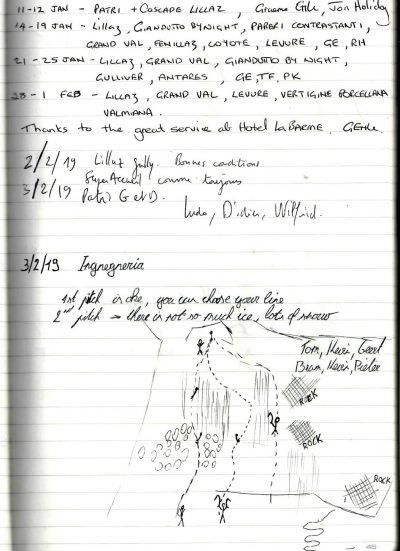 11-12 JAN - PATRI + COSCADE LILLAZ, Graeme Gthe, Jon Holiday
14-19 JAN - Lillaz, GIANDUTTO BY NIGHT, PARERI CONTRASTANTI,
GRAND VAL, FENILLAZ, COYOTE, LEVURE, GE, RH
21-25 JAN - LILLAZ, GRAND VAL, GIANDUTTO BY NIGHT,
GULLIVER, ANTARES, GE, TF, PK
28-1 FEB - LILLAZ, GRAND VAL, LEVURE, VERTIGINE PORCELLANA
VALMIANA.
Thanks to the great service at Hotel LA BARME,
2/2/19 Lillaz gully. Bonnes conditions
Super Accueil comme toujours
3/2/19 Patri G et D.
Ludo, Didier, Wilfrid.
3/2/19 Ingegneria
1st pitch is oke, you can choose your line
2nd pitch → there is not so much ice, lots of snow
Tom, Kevin, Geert
Bram, Kevin, Pieter
ROCK
ROCK
ROCK